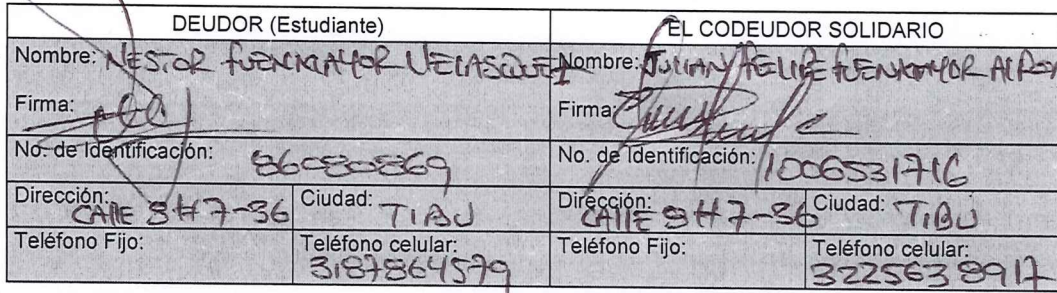 DEUDOR (Estudiante) EL CODEUDOR SOLIDARIO
Nombre: NESTOR FUENMAYOR VELASQUEZ Nombre: JULIAN FELIPE FUENMAYOR
Firma: Firma:
No. de Identificación: 86080869 No. de Identificación: 1006531716
Dirección: CALLE 8 # 7-36 Ciudad: TIBU Dirección: CALLE 8 # 7-36 Ciudad: TIBU
Teléfono Fijo: Teléfono celular: 3187864579 Teléfono Fijo: Teléfono celular: 3225638917